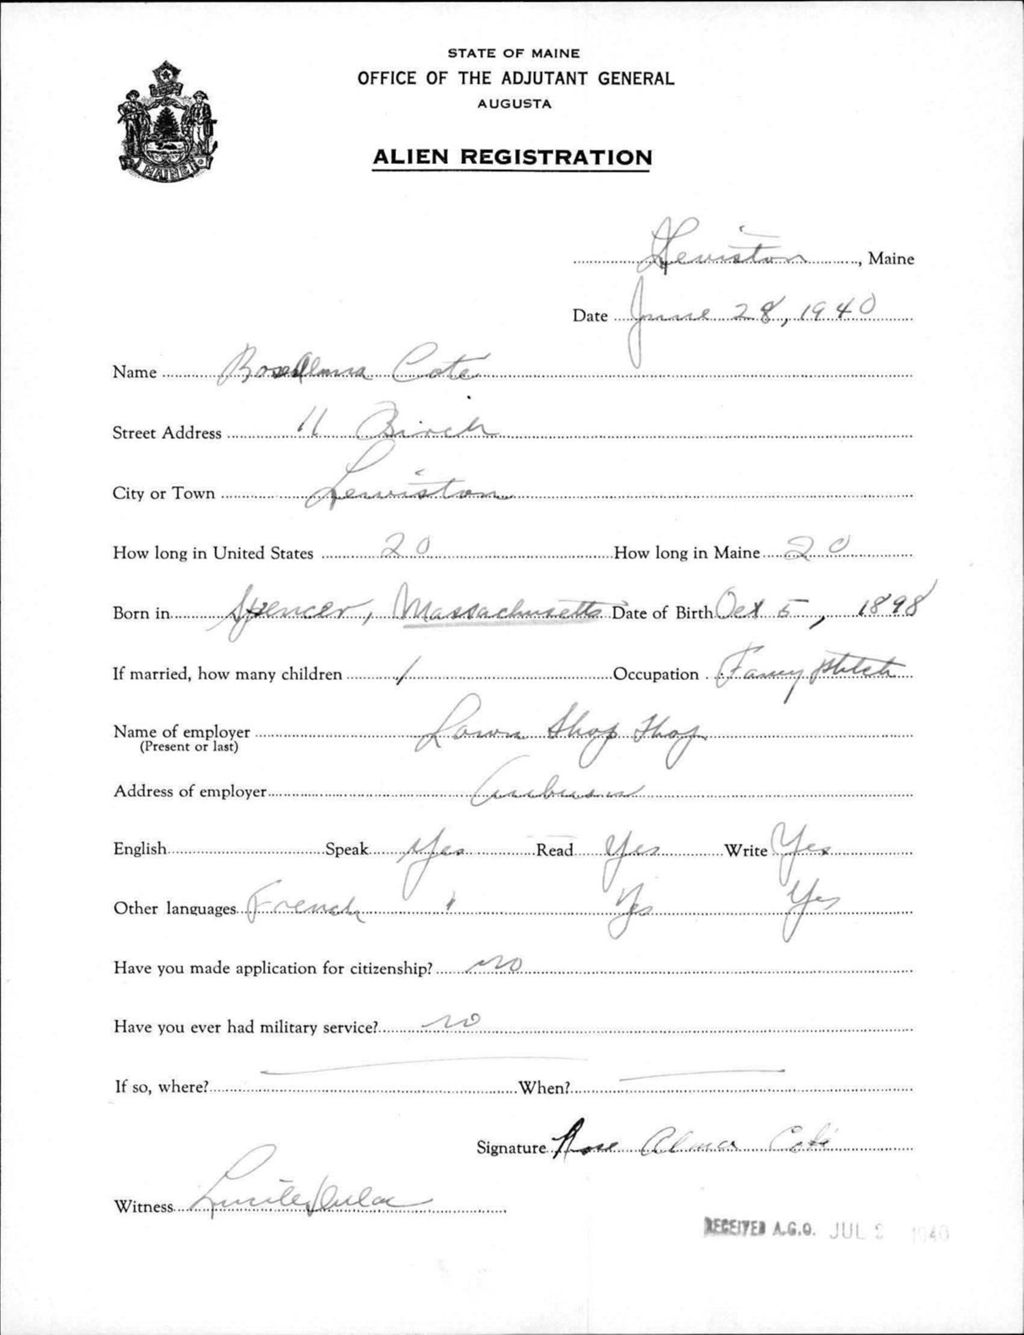 STATE OF MAINE
OFFICE OF THE ADJUTANT GENERAL
AUGUSTA
ALIEN REGISTRATION
MAINE
Lewiston, Maine
Date June 28, 1940
Name Rose Alma Cote
Street Address 11 Birch
City or Town Lewiston
How long in United States 20 How long in Maine 20
Born in Spencer, Massachusetts Date of Birth Oct 5, 1898
If married, how many children 1 Occupation Fancy Stitch
Name of employer Shop
(Present or last)
Address of employer Auburn
English Speak Yes Read Yes Write Yes
Other languages French " Yes Yes
Have you made application for citizenship? no
Have you ever had military service? no
If so, where? When?
Signature Rose Alma Coté
Witness Lucille
RECEIVED A.G.O. JUL 2 1940